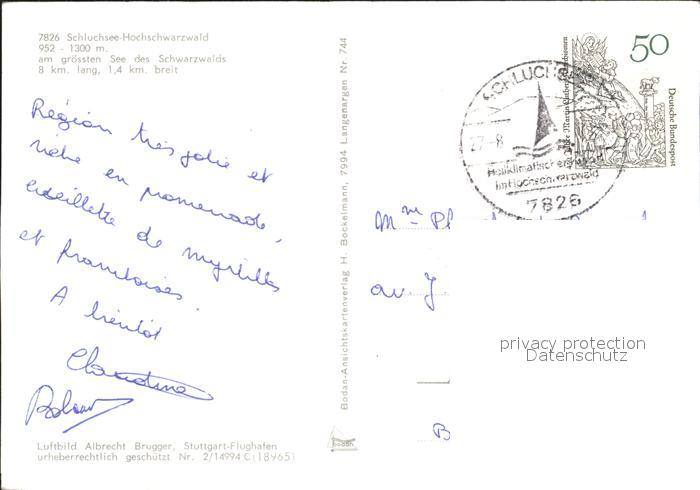 7826 Schluchsee-Hochschwarzwald
952 - 1300 m.
am grössten See des Schwarzwalds
8 km. lang, 1,4 km. breit
Région très jolie et
riche en promenade,
cueillette de myrtilles
et framboises
A bientôt
Claudine
Luftbild Albrecht Brugger, Stuttgart-Flughafen
urheberrechtlich geschützt Nr. 2/14994 C (18965)
Bodan-Ansichtskartenverlag H. Bockelmann, 7994 Langenargen Nr. 744
bodan
SCHLUCHSEE
Heilklimatischer
im Hochschwarzwald
7826
50
Deutsche Bundespost
Mme
av J
B
privacy protection
Datenschutz